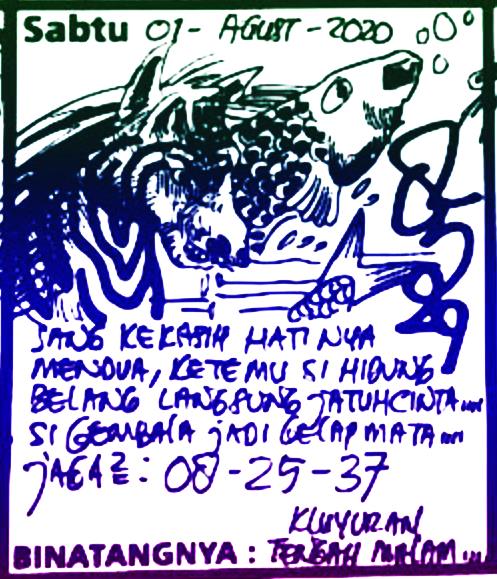 Sabtu 01 - AGUST - 2020
SANG KEKASIH HATI NYA
MENDUA, KETEMU SI HIDUNG
BELANG LANGSUNG JATUHCINTA....
SI GEMBALA JADI GELAP MATA....
JAGA2 = : 08 - 25 - 37
KLUYURAN
BINATANGNYA : TENGAH MALAM...